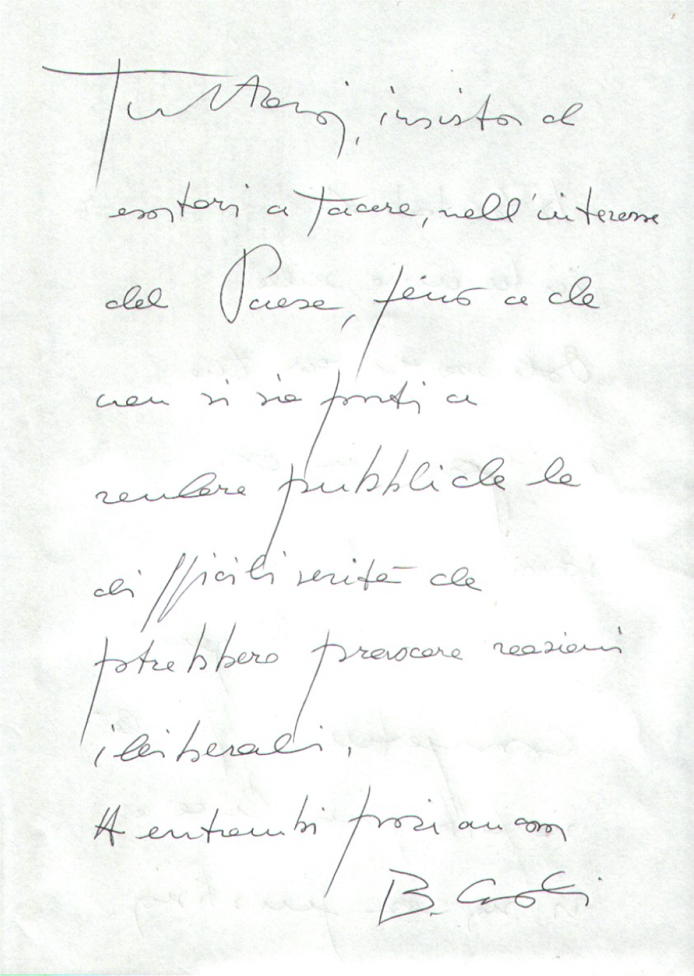 Tuttavia, insisto ad
esortarvi a tacere, nell'interesse
del Paese, fino a che
non si sia pronti a
rendere pubbliche le
difficili verità che
potrebbero provocare reazioni
illiberali.
A entrambi grazie ancora
B.